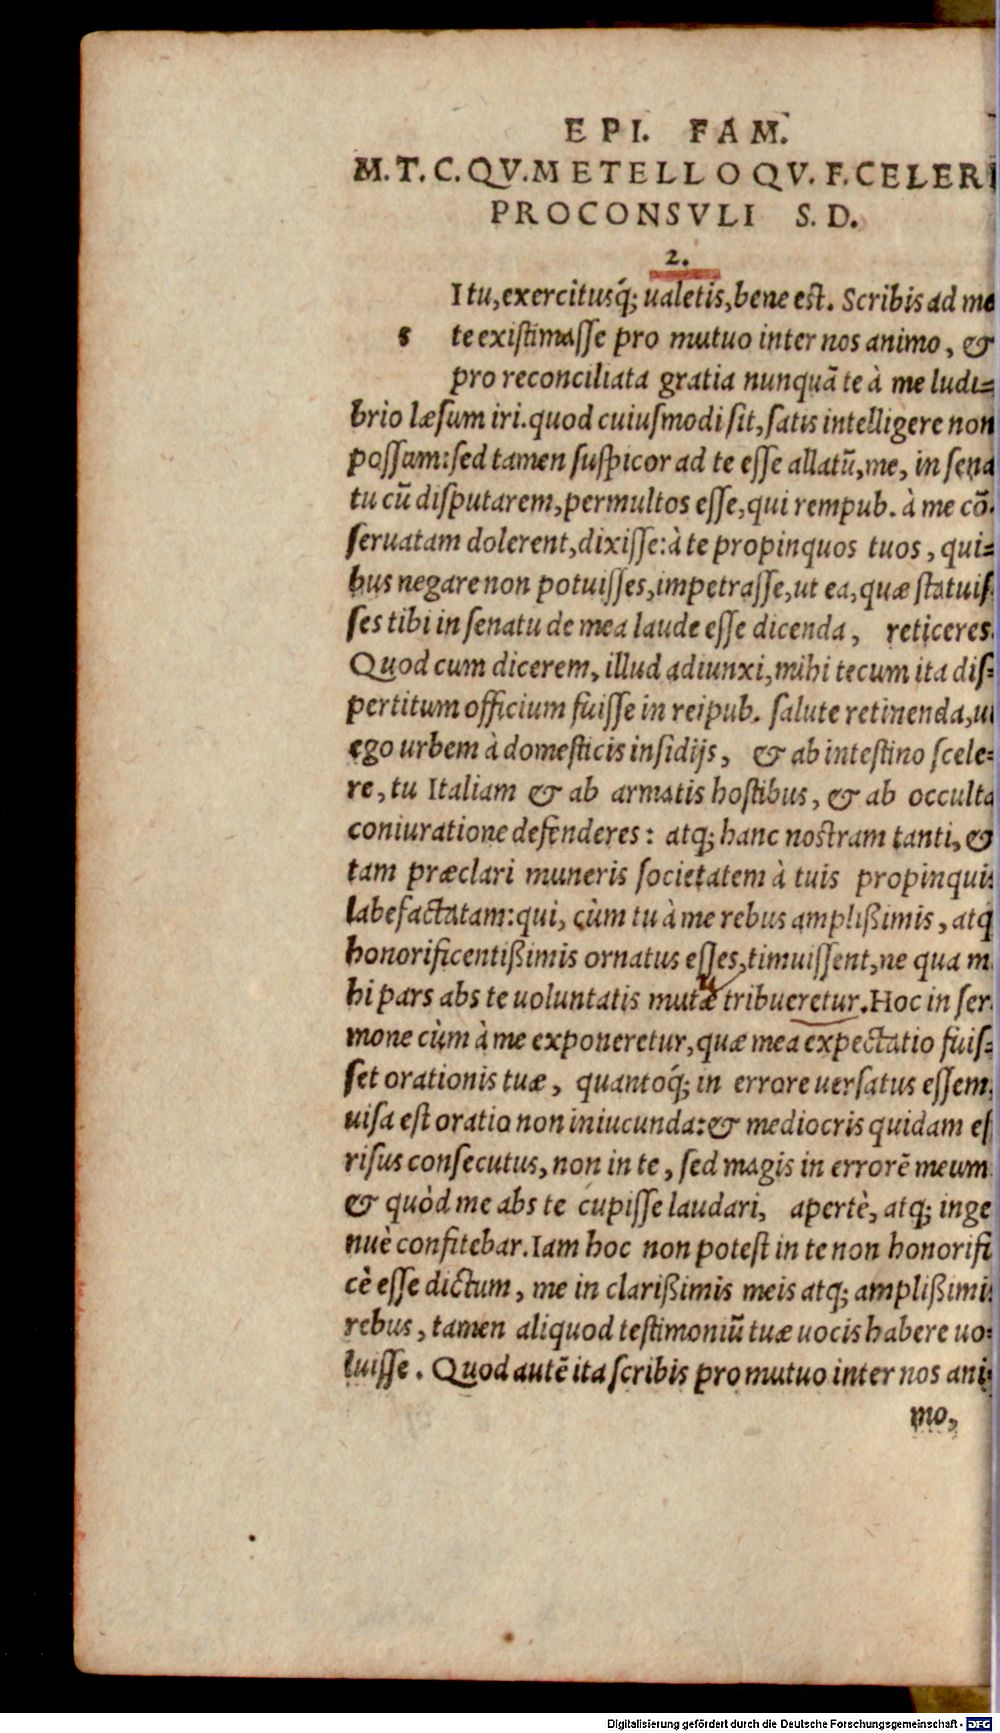 EPI. FAM.
M. T. C. QV. METELLO QV. F. CELERI
PROCONSVLI S. D.
2.
I tu, exercitusq́; ualetis, bene est. Scribis ad me
s te existimasse pro mutuo inter nos animo, &
pro reconciliata gratia nunquā te à me ludi=
brio læsum iri. quod cuiusmodi sit, satis intelligere non
possum: sed tamen suspicor ad te esse allatū, me, in sena
tu cū disputarem, permultos esse, qui rempub. à me cō-
seruatam dolerent, dixisse: à te propinquos tuos, qui=
bus negare non potuisses, impetrasse, ut ea, quæ statuis
ses tibi in senatu de mea laude esse dicenda, reticeres.
Quod cum dicerem, illud adiunxi, mihi tecum ita dis=
pertitum officium fuisse in reipub. salute retinenda, ut
ego urbem à domesticis insidijs, & ab intestino scele=
re, tu Italiam & ab armatis hostibus, & ab occulta
coniuratione defenderes: atq; hanc nostram tanti, &
tam præclari muneris societatem à tuis propinquis
labefactatam: qui, cùm tu à me rebus amplißimis, atq
honorificentißimis ornatus esses, timuissent, ne qua m
hi pars abs te uoluntatis mutæ tribueretur. Hoc in ser
mone cùm à me exponeretur, quæ mea expectatio fuis=
set orationis tuæ, quantoq́; in errore uersatus essem,
uisa est oratio non iniucunda: & mediocris quidam es
risus consecutus, non in te, sed magis in errorē meum
& quòd me abs te cupisse laudari, apertè, atq; inge
nuè confitebar. Iam hoc non potest in te non honorifi
cè esse dictum, me in clarißimis meis atq; amplißimis
rebus, tamen aliquod testimoniū tuæ uocis habere uo=
luisse. Quod autē ita scribis pro mutuo inter nos ani=
mo,
Digitalisierung gefördert durch die Deutsche Forschungsgemeinschaft - DFG